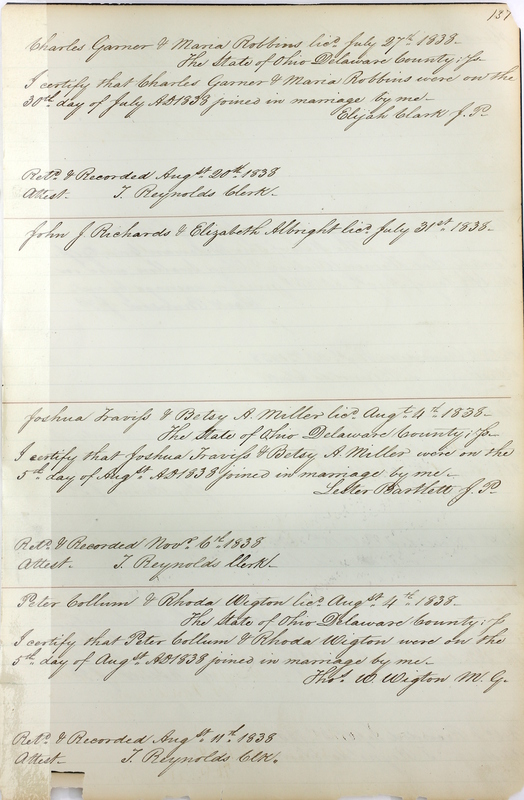 137
Charles Garner & Maria Robbins licd. July 27th. 1838—
The State of Ohio Delaware County; Ss.
I certify that Charles Garner & Maria Robbins were on the
30th. day of July AD1838 joined in marriage by me—
Elijah Clark J. P.
Retd. & Recorded Augst. 20th. 1838
Attest— T. Reynolds Clerk—
John J. Richards & Elizabeth Albright licd. July 31st. 1838—
Joshua Traviss & Betsy A. Miller licd. Augt. 4th. 1838—
The State of Ohio Delaware County; Ss.
I certify that Joshua Traviss & Betsy A. Miller were on the
5th. day of Augst. AD1838 joined in marriage by me—
Lester Bartlett J. P.
Retd. & Recorded Novr. 6th. 1838
Attest— T. Reynolds Clerk—
Peter Collum & Rhoda Wigton licd. Augst. 4th. 1838—
The State of Ohio Delaware County; Ss
I certify that Peter Collum & Rhoda Wigton were on the
5th. day of Augst. AD1838 joined in marriage by me—
Thos. W. Wigton M. G.
Retd. & Recorded Augst. 11th. 1838
Attest— T. Reynolds Clk.